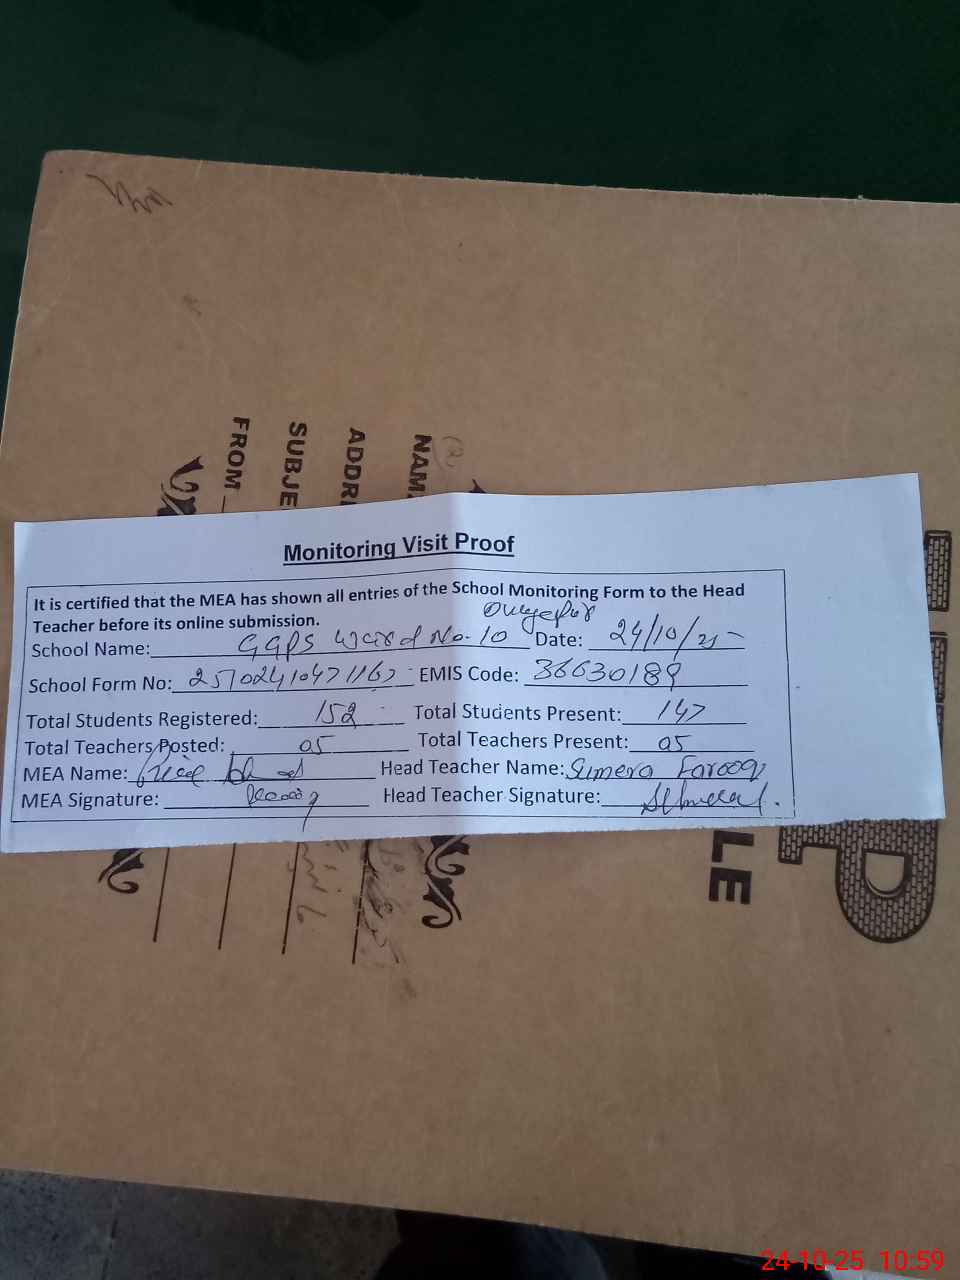 FROM
SUBJE
ADDR
NAM
Monitoring Visit Proof
It is certified that the MEA has shown all entries of the School Monitoring Form to the Head
Teacher before its online submission.
School Name: GGPS Ward No-10 Date: 24/10/25
School Form No: EMIS Code: 36630189
Total Students Registered: 152 Total Students Present: 147
Total Teachers Posted: 05 Total Teachers Present: 05
MEA Name: Head Teacher Name: Sumera Farooq
MEA Signature: Head Teacher Signature:
LE
P
24-10-25 10:59